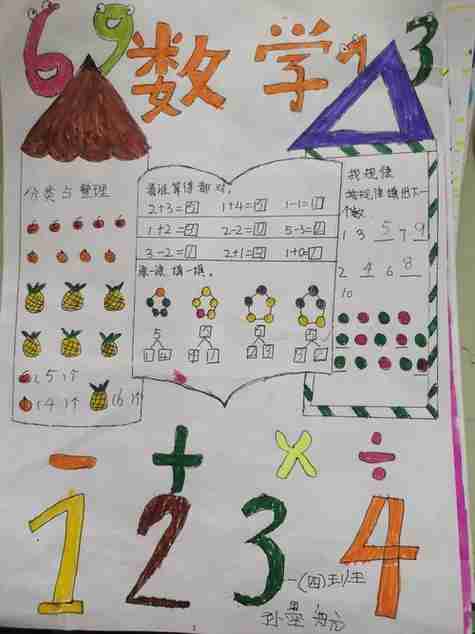 69 数学 1 3
分类与整理
( 5 )个
( 4 )个
( 6 )个
看谁算得都对。
2+3=5 1+4=5 1-1=0
1+2=3 2-2=0 5-3=2
3-2=1 2+1=3 1+0=1
涂一涂 填一填。
5
1 4
找规律
按规律填出下一
个数
1 3 5 7 9
2 4 6 8
10
- + × ÷
1 2 3 4
一(四)班